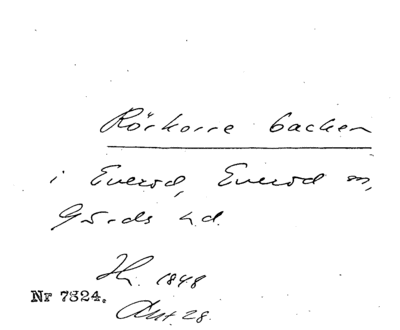 Rörkorre backen
i Everöd, Everöd sn,
Gärds hd.
Hn. 1848
Nr 7324.
Ant. 28.